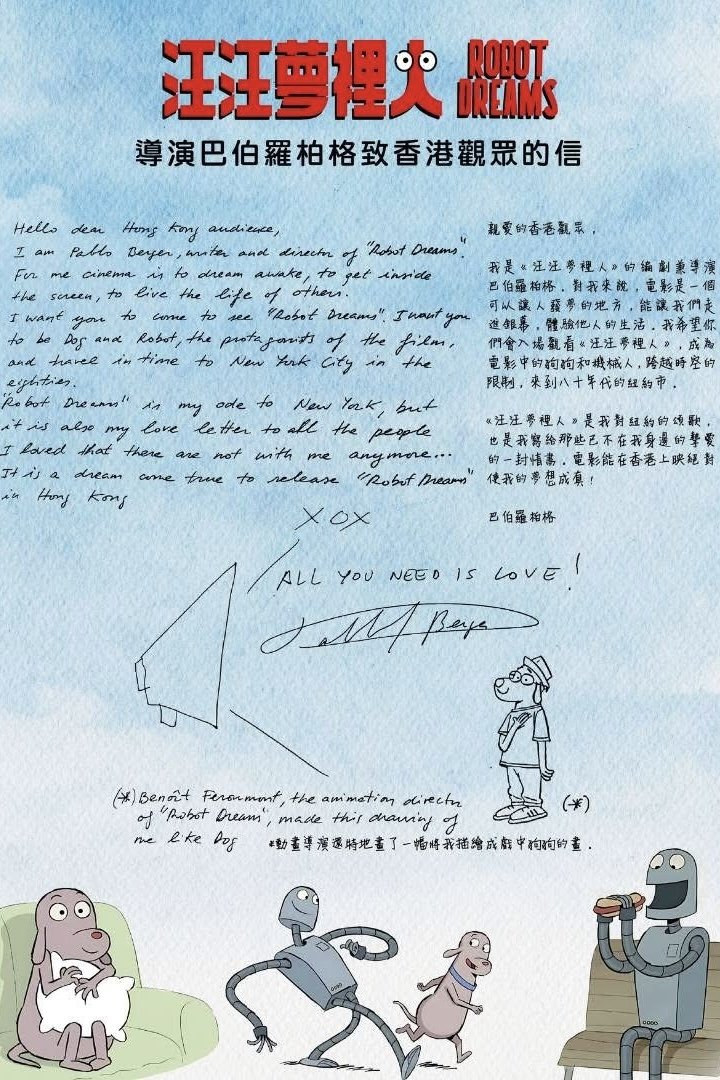 汪汪夢裡人 ROBOT DREAMS
導演巴伯羅柏格致香港觀眾的信
Hello dear Hong Kong audience,
I am Pablo Berger, writer and director of "Robot Dreams".
For me cinema is to dream awake, to get inside
the screen, to live the life of others.
I want you to come to see "Robot Dreams". I want you
to be Dog and Robot, the protagonists of the film,
and travel in time to New York City in the
eighties.
"Robot Dreams" is my ode to New York, but
it is also my love letter to all the people
I loved that there are not with me anymore...
It is a dream come true to release "Robot Dreams"
in Hong Kong
XOX
ALL YOU NEED IS LOVE!
Pablo Berger
親愛的香港觀眾，
我是《汪汪夢裡人》的編劇兼導演
巴伯羅柏格，對我來說，電影是一個
可以讓人發夢的地方，能讓我們走
進銀幕，體驗他人的生活，我希望你
們會入場觀看《汪汪夢裡人》，成為
電影中的狗狗和機械人，跨越時空的
限制，來到八十年代的紐約市．
《汪汪夢裡人》是我對紐約的頌歌，
也是我寫給那些已不在我身邊的摯愛
的一封情書，電影能在香港上映絕對
使我的夢想成真！
巴伯羅柏格
(*)
(*) Benoît Feroumont, the animation director
of "Robot Dream", made this drawing of
me like Dog
*動畫導演還特地畫了一幅將我描繪成戲中狗狗的畫．